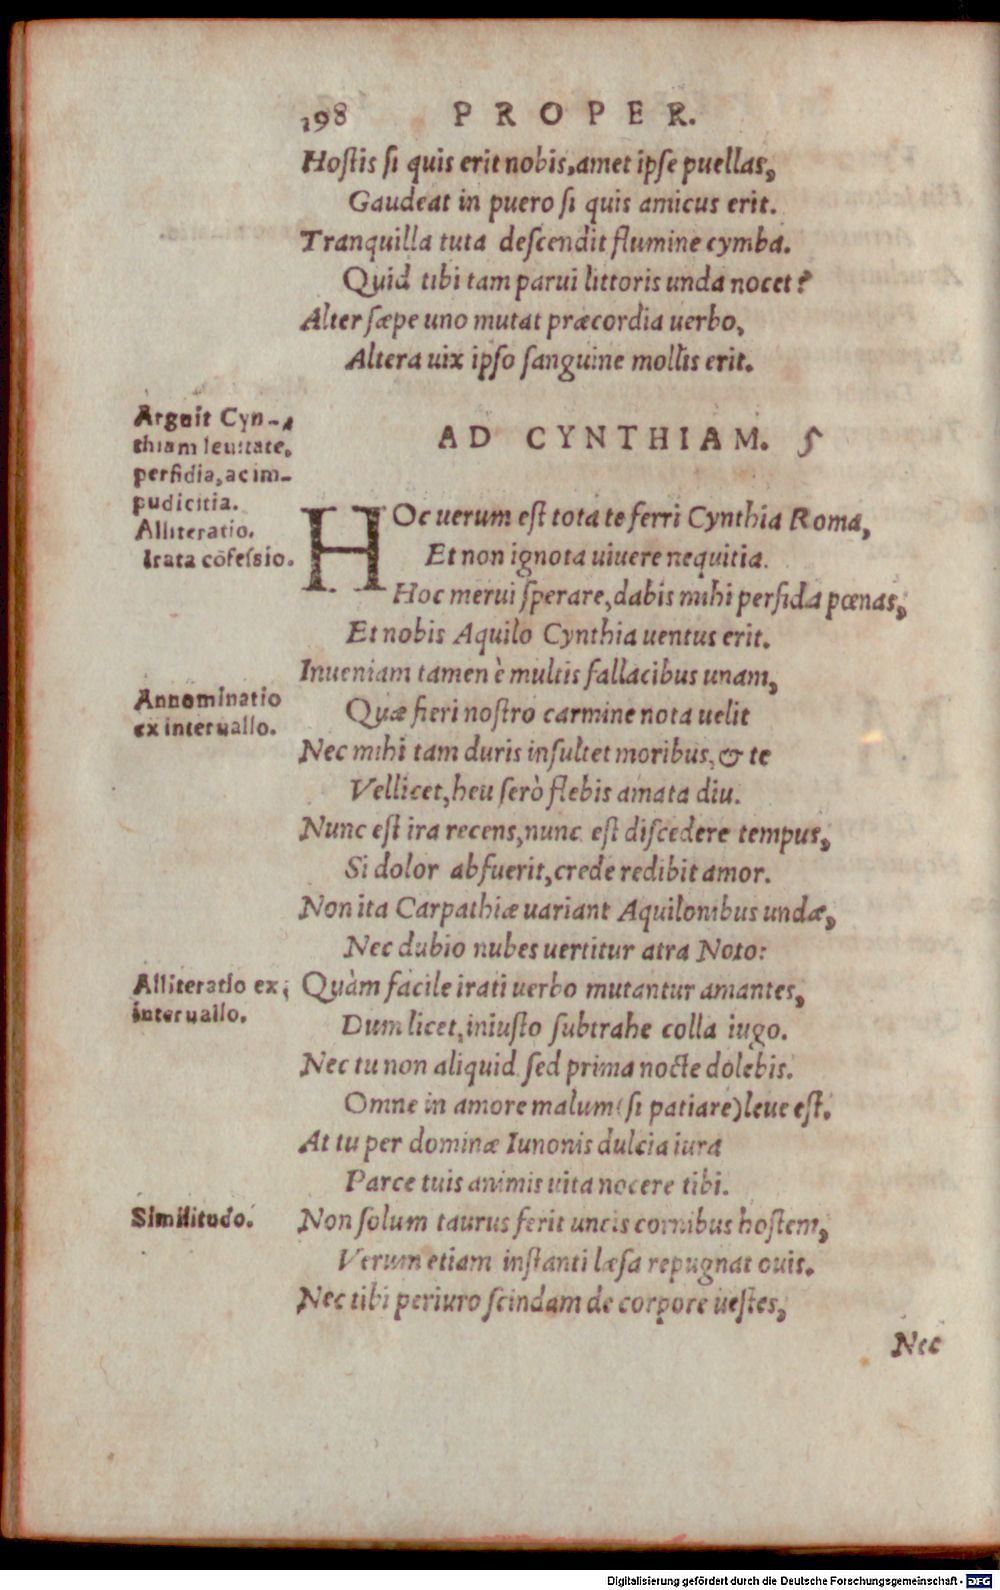 198 PROPER.
Hostis si quis erit nobis, amet ipse puellas,
Gaudeat in puero si quis amicus erit.
Tranquilla tuta descendit flumine cymba.
Quid tibi tam parui littoris unda nocet?
Alter sæpe uno mutat præcordia uerbo,
Altera uix ipso sanguine mollis erit.
Arguit Cyn-
thiam leuitate,
perfidia, ac im-
pudicitia.
Alliteratio.
Irata cōfessio.
AD CYNTHIAM. 5
HOc uerum est tota te ferri Cynthia Roma,
Et non ignota uiuere nequitia.
Hoc merui sperare, dabis mihi perfida pœnas,
Et nobis Aquilo Cynthia uentus erit.
Inueniam tamen è multis fallacibus unam,
Annominatio
ex interuallo.
Quæ fieri nostro carmine nota uelit
Nec mihi tam duris insultet moribus, & te
Vellicet, heu serò flebis amata diu.
Nunc est ira recens, nunc est discedere tempus,
Si dolor abfuerit, crede redibit amor.
Non ita Carpathiæ uariant Aquilonibus undæ,
Nec dubio nubes uertitur atra Noto:
Alliteratio ex
interuallo.
Quàm facile irati uerbo mutantur amantes,
Dum licet, iniusto subtrahe colla iugo.
Nec tu non aliquid sed prima nocte dolebis.
Omne in amore malum (si patiare) leue est.
At tu per dominæ Iunonis dulcia iura
Parce tuis animis uita nocere tibi.
Similitudo.
Non solum taurus ferit uncis cornibus hostem,
Verum etiam instanti læsa repugnat ouis.
Nec tibi periuro scindam de corpore uestes,
Nec
Digitalisierung gefördert durch die Deutsche Forschungsgemeinschaft - DFG